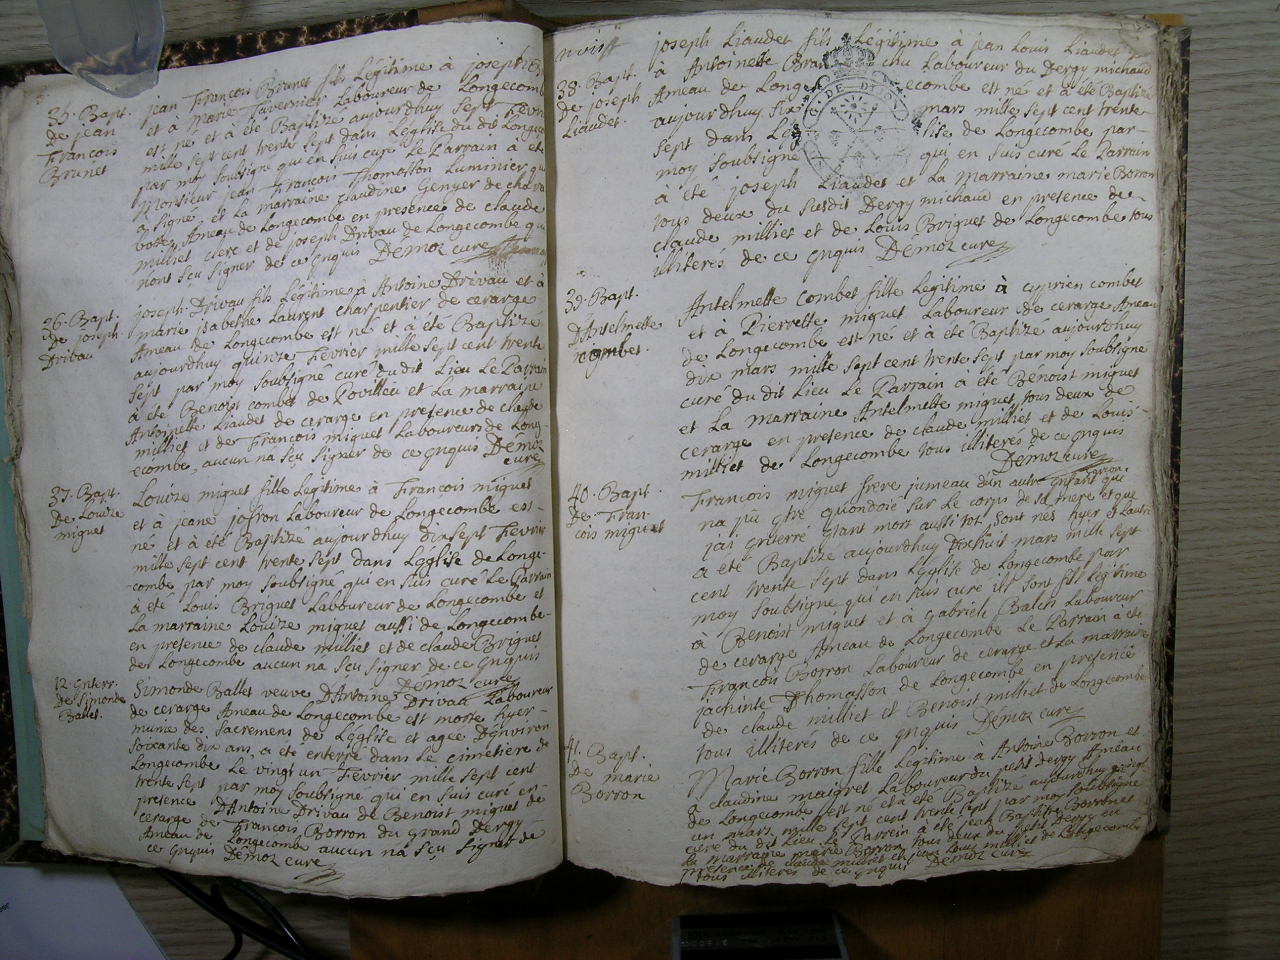 35. Bapt.
de jean
François
Brunet
jean François Brunet fils Légitime à joseph
et à marie Tavernier Laboureur de Longecombe
est né et à été Baptize aujourdhuy sept Fevrier
mille sept cent trente sept dans Léglise du dit Longe
par moy soubsigné qui en suis curé Le Parrain à été
Monsieur jean François Thomasson Luminier qui
a signé, et La marraine claudine Genyer de
Ameau de Longecombe en presence de claude
milliet clerc et de joseph Drivau de Longecombe qui
nont sçu signer de ce gnquis Démoz curé
36. Bapt.
de joseph
Drivau
joseph Drivau fils Légitime à Antoine Drivau et à
marie jsabethe Laurent charpentier de cerarge
Ameau de Longecombe est né et à été Baptizé
aujourdhuy quinze Fevrier mille sept cent trente
sept par moy soubsigné curé du dit Lieu Le Parrain
à été Benoist combet de Rovillieu et La marraine
Antoinette Liaudet de cerarge en presence de claude
milliet et de François miguet Laboureurs de Long-
ecombe, aucun na sçu signer de ce gnquis Démoz
curé
37. Bapt.
De Louize
miguet
Louize miguet fille Legitime à François miguet
et à jeane josron Laboureur de Longecombe est
né et à été Baptize aujourdhuy dixsept Fevrier
mille sept cent trente sept dans Léglise de Longe-
combe par moy soubsigné qui en suis curé Le Parrain
à été Louis Briguet Laboureur de Longecombe et
La marraine Louize miguet aussi de Longecombe
en presence de claude milliet et de claude Briguet
de Longecombe aucun na sçu signer de ce gnquis
Démoz curé
12. Enterr.
de Simonde
Ballet.
Simonde Ballet veuve D'Antoine Drivau Laboureur
de cerarge Ameau de Longecombe est morte hyer
munie des Sacremens de Léglise et agée Denviron
soixante dix ans, a été enterré dans Le cimetiere de
Longecombe Le vingt un Fevrier mille sept cent
trente sept par moy soubsigné qui en suis curé en
presence D'Antoine Drivau de Benoist miguet de
cerarge de François Borron du Grand Dergy
Ameau de Longecombe aucun na sçu signer de
ce gnquis Démoz curé
38. Bapt.
De joseph
Liaudet.
joseph Liaudet fils Légitime à jean Louis Liaudet
à Antoinette Laboureur du Dergy michaud
Ameau de Longecombe est né et à été Baptizé
aujourdhuy mars mille sept cent trente
sept dans Léglise de Longecombe par
moy soubsigné qui en suis curé Le Parrain
à été joseph Liaudet et La marraine marie Borron
tous deux du susdit Dergy michaud en presence de
claude milliet et de Louis Briguet de Longecombe tous
illiterés de ce gnquis Démoz curé
39. Bapt.
D'Antelmette
combet.
Antelmette combet fille Légitime à cyprien combet
et à Pierrette miguet Laboureur de cerarge Ameau
de Longecombe est né et à été Baptize aujourdhuy
dix mars mille sept cent trente sept par moy soubsigné
curé du dit Lieu Le Parrain à été Bénoist miguet
et La marraine Antelmette miguet tous deux de
cerarge en presence de claude milliet et de Louis
milliet de Longecombe tous illiterés de ce gnquis
Démoz curé
40. Bapt.
De Fran-
cois miguet
François miguet frere jumeau dun autre enfant que
na pû quondoié sur le corps de sa mere et que
jai enterré étant mort aussi tot sont nés hyer et Lautre
a été Baptize aujourdhuy dixhuit mars mille sept
cent trente sept dans Léglise de Longecombe par
moy soubsigné qui en suis curé ils sont fils Légitime
à Benoist miguet et à Gabriele Balet Laboureur
de cerarge Ameau de Longecombe Le Parrain a été
François Borron Laboureur de cerarge et La marraine
jachinte Thomasson de Longecombe en presence
de claude milliet et Benoist milliet de Longecombe
tous illiterés de ce gnquis Démoz curé
41. Bapt.
De marie
Borron
Marie Borron fille Légitime à Antoine Borron et
à claudine maigret Laboureur du petit dergy Ameau
de Longecombe est né et à été Baptize aujourdhuy vingt
un mars mille sept cent trente sept par moy soubsigné
curé du dit Lieu Le Parrein a été jean Baptiste Borron et
La marraine marie Borron tous deux du petit dergy en
presence de claude milliet et jean Louis milliet de Longecombe
tous illiterés de ce gnquis Démoz curé